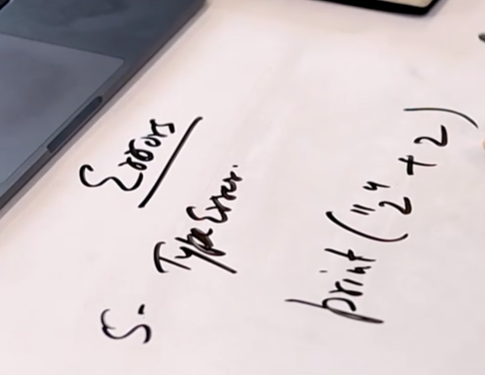 Errors
5. TypeError.
print("2" + 2)